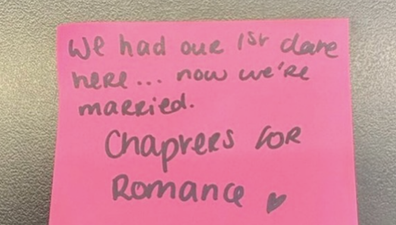 We had our 1st date
here... now we're
married.
Chapters for
Romance ♥